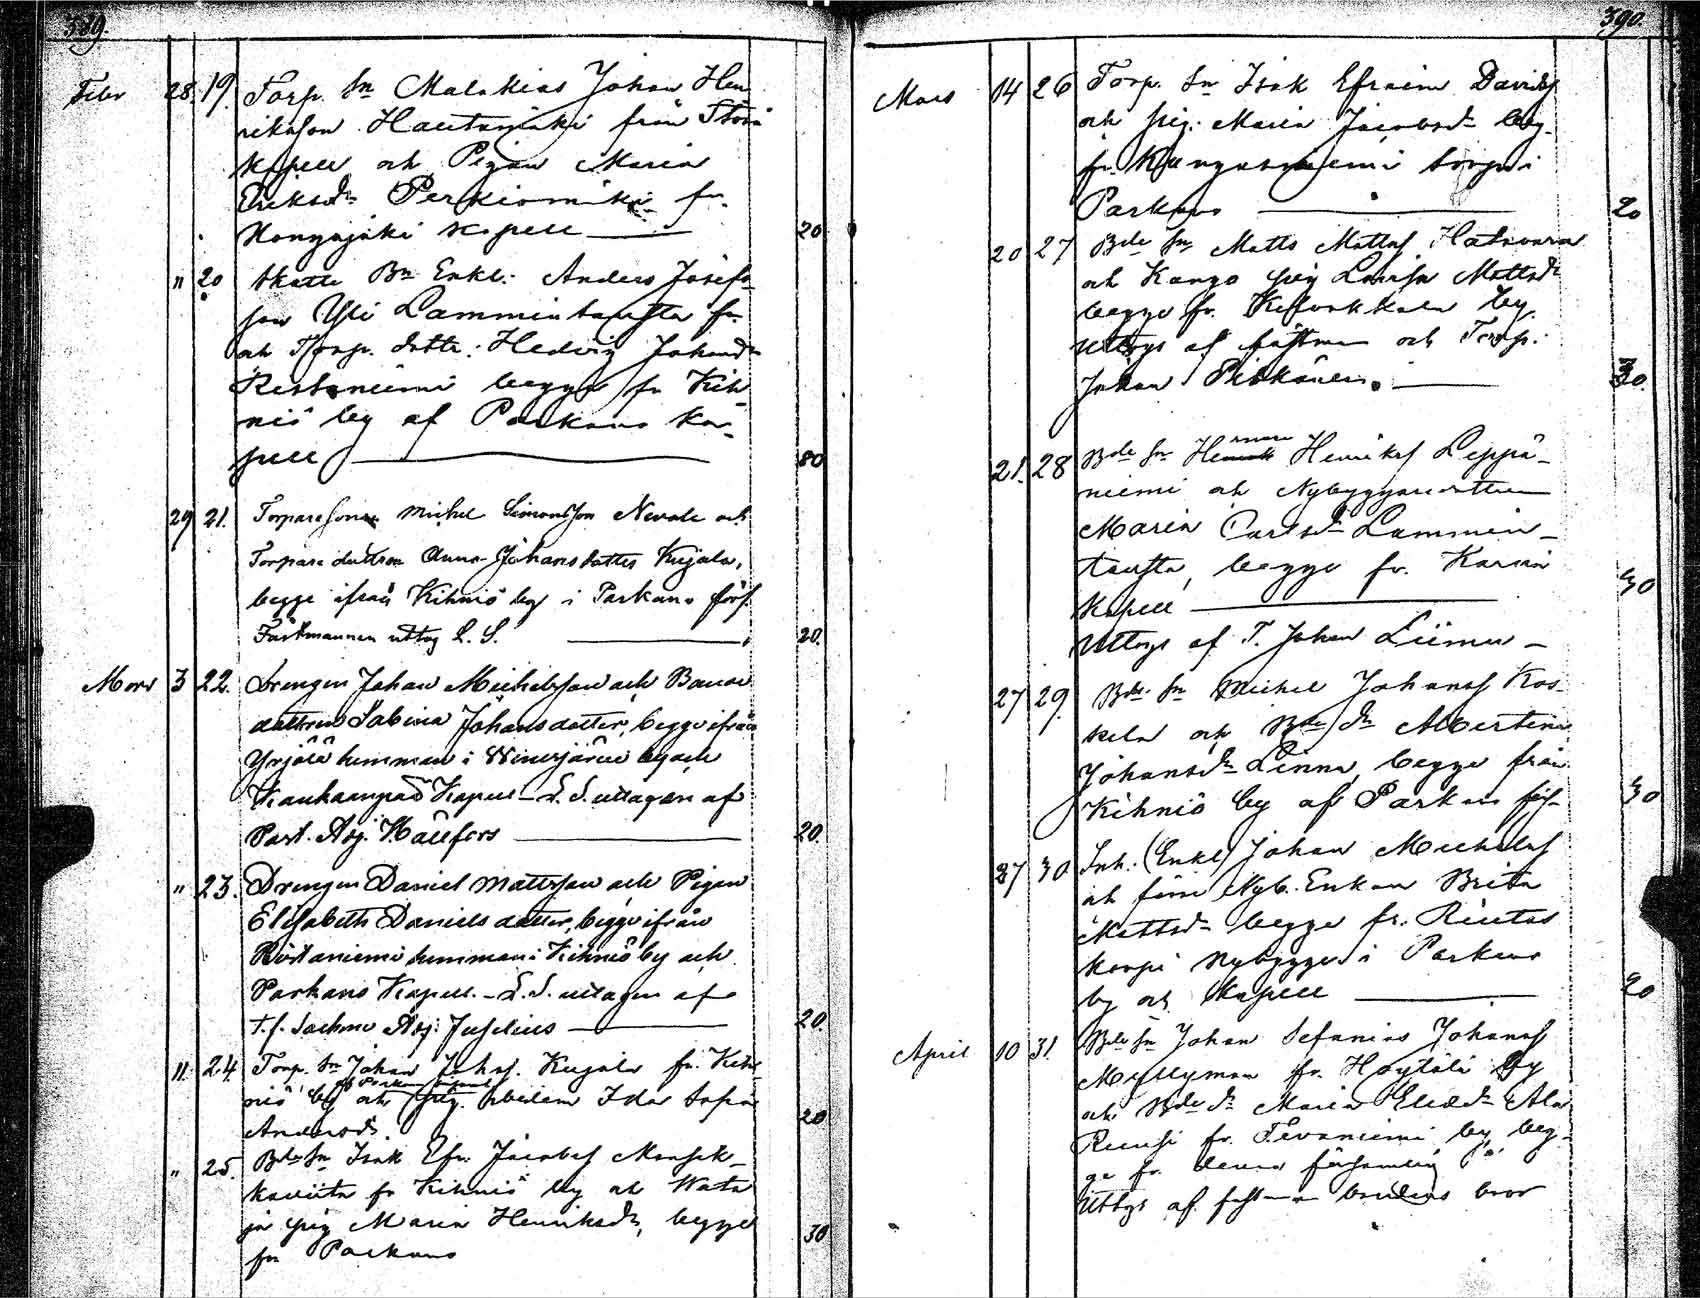 389.
Febr 28. 19. Torp. Sn Malakias Johan Hen
riksson Hautamäki från
kapell och Pigan Maria
Eriksdr Perkiömäki fr.
Hongajoki kapell — 20
" 20 Skatte Bn Enkl. Anders Josefs
son Yli Lammintausta fr.
och Torp. dottr. Hedvig Johansdr
Ristaniemi begge fr Kih
niö by af Parkano Ka-
pell — 80
29 21. Torpare sonen Michel Simonsson Nevala och
Torpare dottren Anna Johansdotter Kujala,
begge ifrån Kihniö by i Parkano förs.
Fästmannen uttog L. S. — 20.
Mars 3 22. Drengen Johan Michelsson och Bonde
dottren Sabina Johansdotter, begge ifrån
Yrjölä hemman i by och
Kankaanpää Kapell – L. S. uttagen af
Past. Adj. Hällfors — 20.
" 23. Drengen Daniel Mattsson och Pigan
Elisabeth Daniels dotter, begge ifrån
Ristaniemi hemman i Kihniö by och
Parkano Kapell. – L. S. uttagen af
t. f. Sockne Adj. Juselius — 20.
" 24. Torp. Sn Johan Johss. Kujala fr. Kih-
niö by af Parkano kapell och pig. Ida Sofia
Andersdr. 20
" 25. Bde Sn Isak Efr. Jacobss
fr Kihniö by och
pig Maria Henriksdr, begge
fr Parkano 30
390.
Mars 14 26 Torp. Sn Isak Efraim Davidss
och pig. Maria Jacobsdr beg.
fr. Kangasniemi torp i
Parkano — 20
20 27 Bde Sn Matts Mattss Hatavara
och pig Lovisa Mattsdr
begge fr. by.
Uttogs af fästman och Torp.
Johan — 30.
21. 28 Bde Sn Henrikss Leppä-
niemi och Nybyggare dottren
Maria Carlsdr Lammin-
tausta, begge fr. Karvia
Kapell — 30
Uttogs af T. Johan —
27 29. Bde Sn Michel Johanss Kos-
kela och Bde dr Albertina
Johansdr Linna, begge från
Kihniö by af Parkano förs. 30
27 30 Inh. (Enkl) Johan Michelss
och förre Nyb. Enkan Brita
Mattsdr begge fr.
korpi Nybygge i Parkano
by och Kapell — 20
April 10 31. Bde Sn Johan Sefanias Johanss
Myllymaa fr. Höytölä by
och Bde dr Maria Eliedr Ala
fr. Tevaniemi by, beg-
ge fr. denna församling
Uttogs af brudens bror